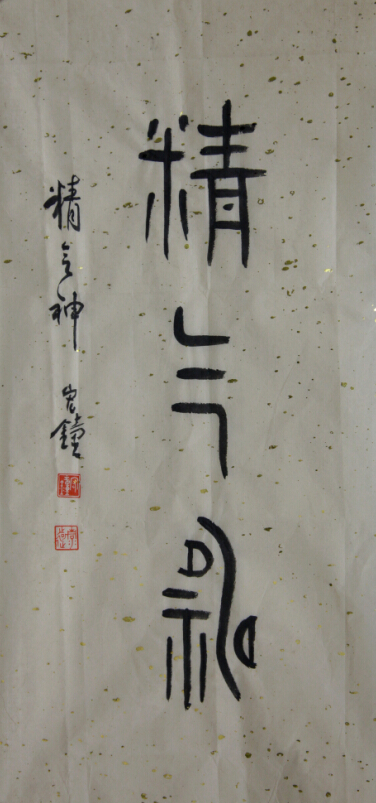 精气神
精气神 鐘